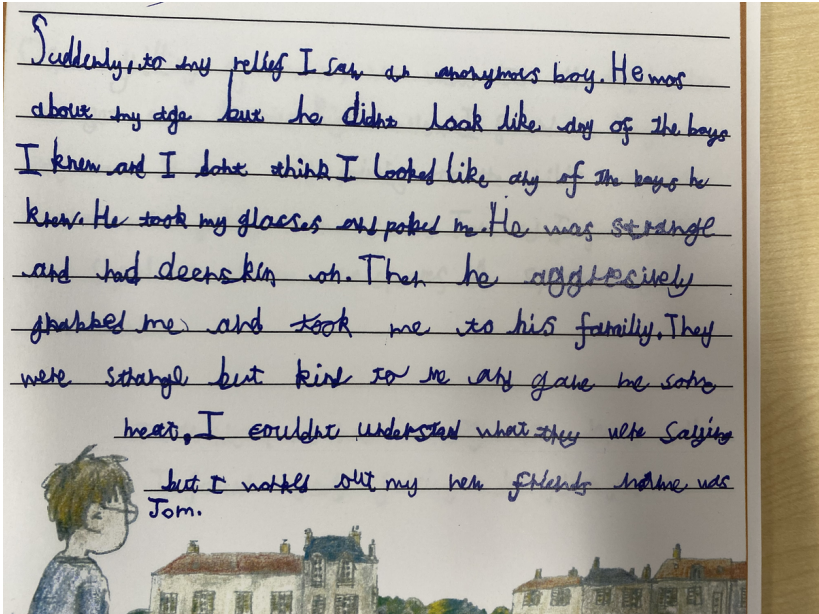 Suddenly, to my relief I saw an anonymous boy. He was
about my age but he didnt look like any of the boys
I knew and I dont think I looked like any of the boys he
knew. He took my glasses and poked me. He was strange
and had deerskin on. Then he aggresively
grabbed me, and took me to his familiy. They
were strange but kind to me and gave me some
meat, I couldnt understand what they were saying
but I worked out my new friends name was
Tom.